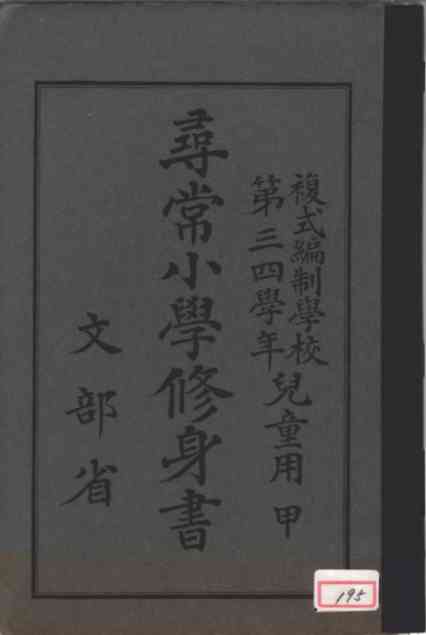 複式編制學校
第三四學年
兒童用 甲
尋常小學修身書
文部省
195